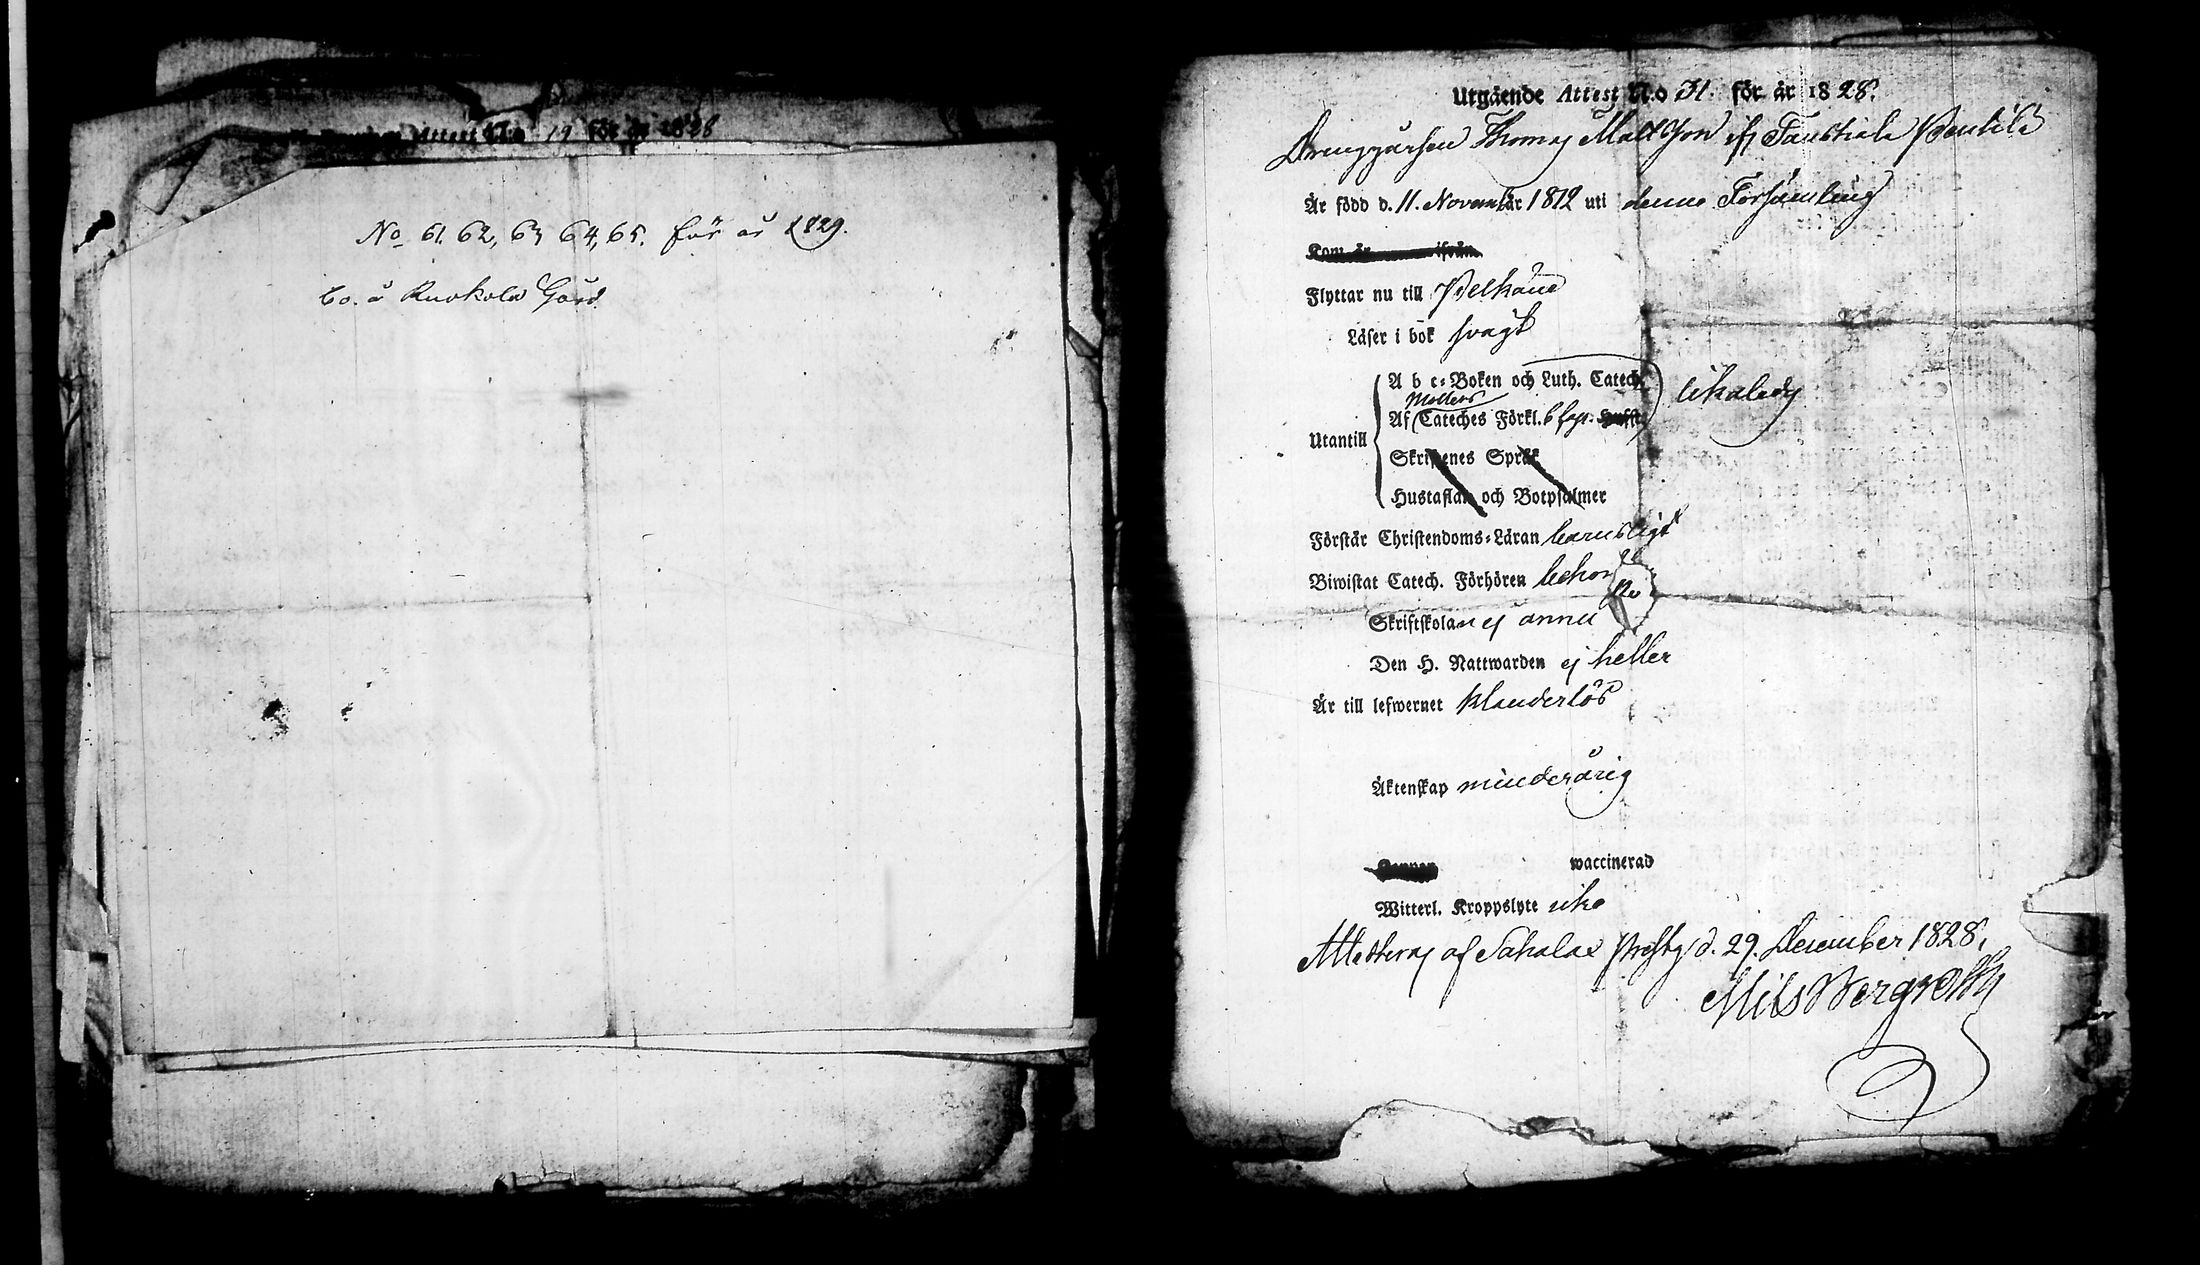 Attest No 19 för år 1828
No 61. 62, 63, 64, 65. för år 1829.
bo. å Ruokola Gård
Utgående Attest No 31. för år 1828.
Drenggåssen Thomas Mattsson ifr Tanskiala
Är född d. 11. Novemb. år 1812 uti denna Församling
Kom år ifrån
Flyttar nu till Pelkäne
Läser i bok svagt
A b c-Boken och Luth. Catech.
Möllers
Af Cateches Förkl. 6 cap.
likaledes
Utantill
Skriftenes Språk
Hustaflan och Botpsalmer
Förstår Christendoms-Läran barnsligt
Biwistat Catech. Förhören
Skriftskolan ej ännu
Den H. Nattwarden ej heller
Är till lefwernet klanderlös
Äktenskap minderårig
waccinerad
Witterl. Kroppslyte
Attesteras af Sahalax d. 29. December 1828.
Nils Bergroth